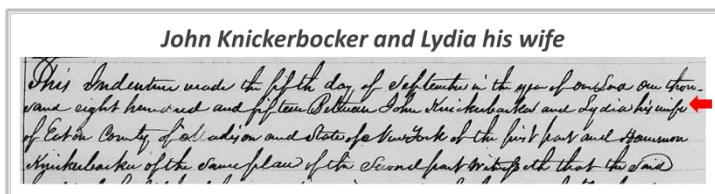 John Knickerbocker and Lydia his wife
This Indenture made the fifth day of September in the year of our Lord One thou-
sand eight hundred and fifteen Between John Knickerbacker and Lydia his wife
of Eaton County of Madison and State of New York of the first part and
Knickerbacker of the same place of the Second part Witnesseth that the Said